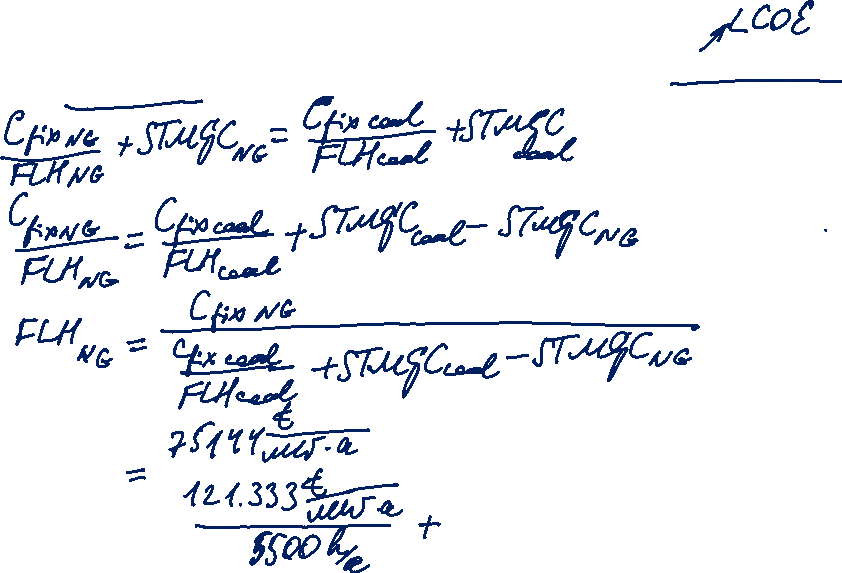 LCOE
C fix NG / FLH NG + STMGC NG = C fix coal / FLH coal + STMGC coal
C fix NG / FLH NG = C fix coal / FLH coal + STMGC coal - STMGC NG
FLH NG = C fix NG / (C fix coal / FLH coal + STMGC coal - STMGC NG)
= 75144 €/MW·a
121.333 €/MW·a / 5500 h/a +